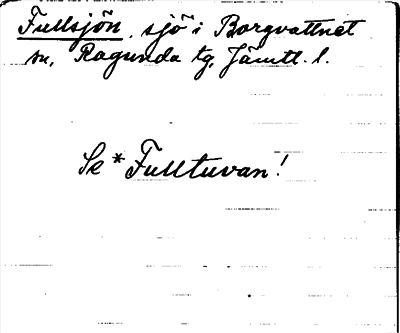 Fullsjön, sjö i Borgvattnet
sn, Ragunda tg, Jämtl. l.
Se *Fulltuvan!